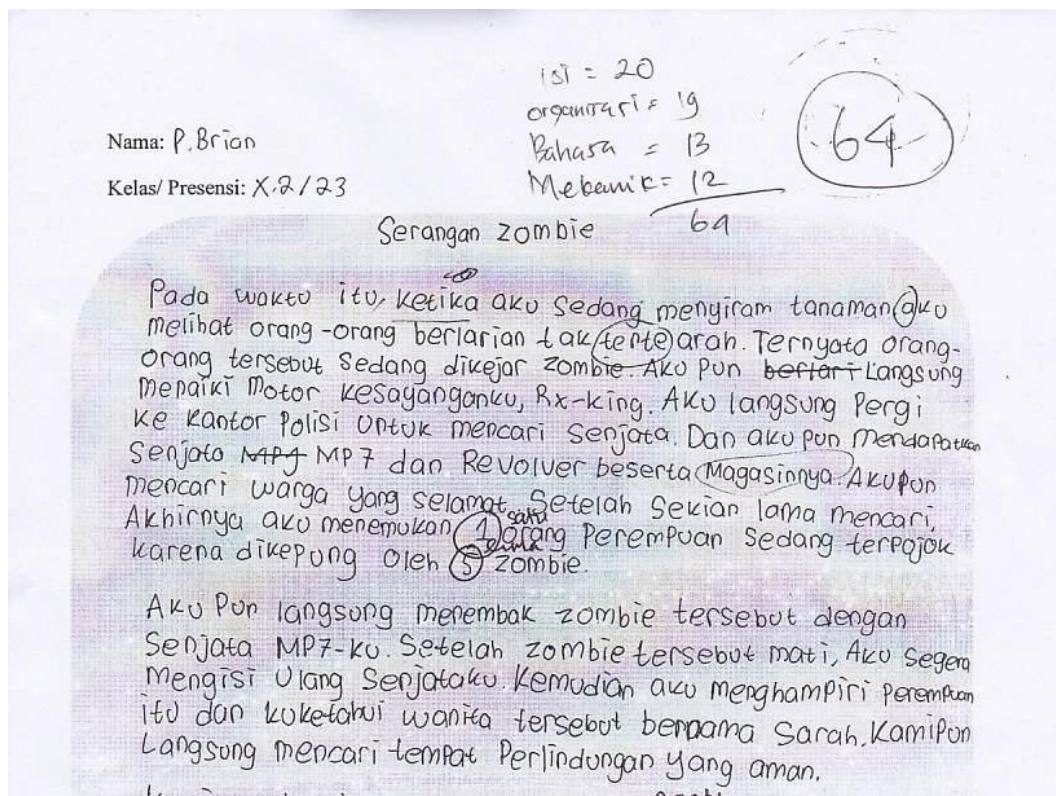 isi = 20
organisasi = 19
Bahasa = 13
Mekanik = 12
64
64
Nama: P. Brian
Kelas/ Presensi: X.2/23
Serangan zombie
Pada waktu itu, ketika aku sedang menyiram tanaman aku
melihat orang-orang berlarian tak tente arah. Ternyata orang-
orang tersebut sedang dikejar zombie. Aku pun berlari Langsung
menaiki motor kesayanganku, Rx-king. Aku langsung Pergi
ke kantor Polisi untuk mencari senjata. Dan aku pun mendapatkan
Senjata MP7 dan Revolver beserta Magasinnya. Akupun
mencari warga yang selamat. Setelah sekian lama mencari,
satu
Akhirnya aku menemukan 1 orang Perempuan sedang terpojok
lima
karena dikepung oleh 5 zombie.
Aku Pun langsung menembak zombie tersebut dengan
Senjata MP7-ku. Setelah zombie tersebut mati, Aku segera
mengisi Ulang Senjataku. Kemudian aku menghampiri perempuan
itu dan kuketahui wanita tersebut bernama Sarah. KamiPun
Langsung mencari tempat Perlindungan yang aman.